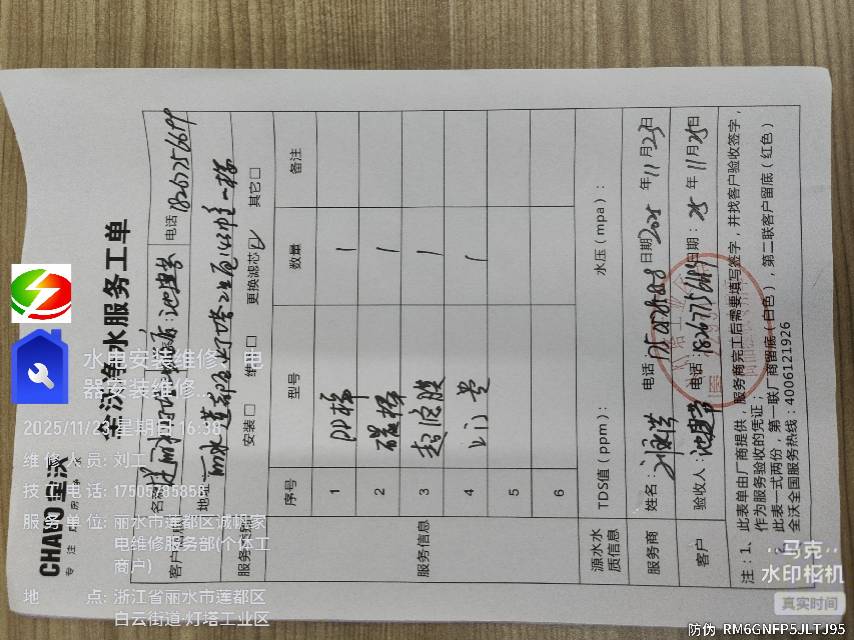 CHAWO 全沃
专 注 厨 房 净 水
全沃净水服务工单
电话 18267756699
地址
服务类别 安装□ 维 □ 更换滤芯☑ 其它□
服务信息 序号 型号 数量 备注
1 PP棉 1
2 碳棒 1
3 超滤膜 1
4 上门费 1
5
6
源水水质信息 TDS值（ppm）： 水压（mpa）：
服务商 姓名： 电话： 日期 2025 年 11 月 23 日
客户 验收人： 电话： 日期： 25 年 11 月 25 日
注：1、此表单由厂商提供，服务商完工后需要填写签字，并找客户验收签字，
作为服务验收的凭证；
此表一式两份，第一联厂商留底（白色），第二联客户留底（红色）
全沃全国服务热线：4006121926
水电安装维修、电
器安装维修...
2025/11/23 星期日 16:38
维修人员: 刘工
电话: 17505785858
服务单位: 丽水市莲都区诚帼家
电维修服务部(个体工
商户)
地 点: 浙江省丽水市莲都区
白云街道·灯塔工业区
马克
水印相机
真实时间
防伪 RM6GNFP5JLTJ95